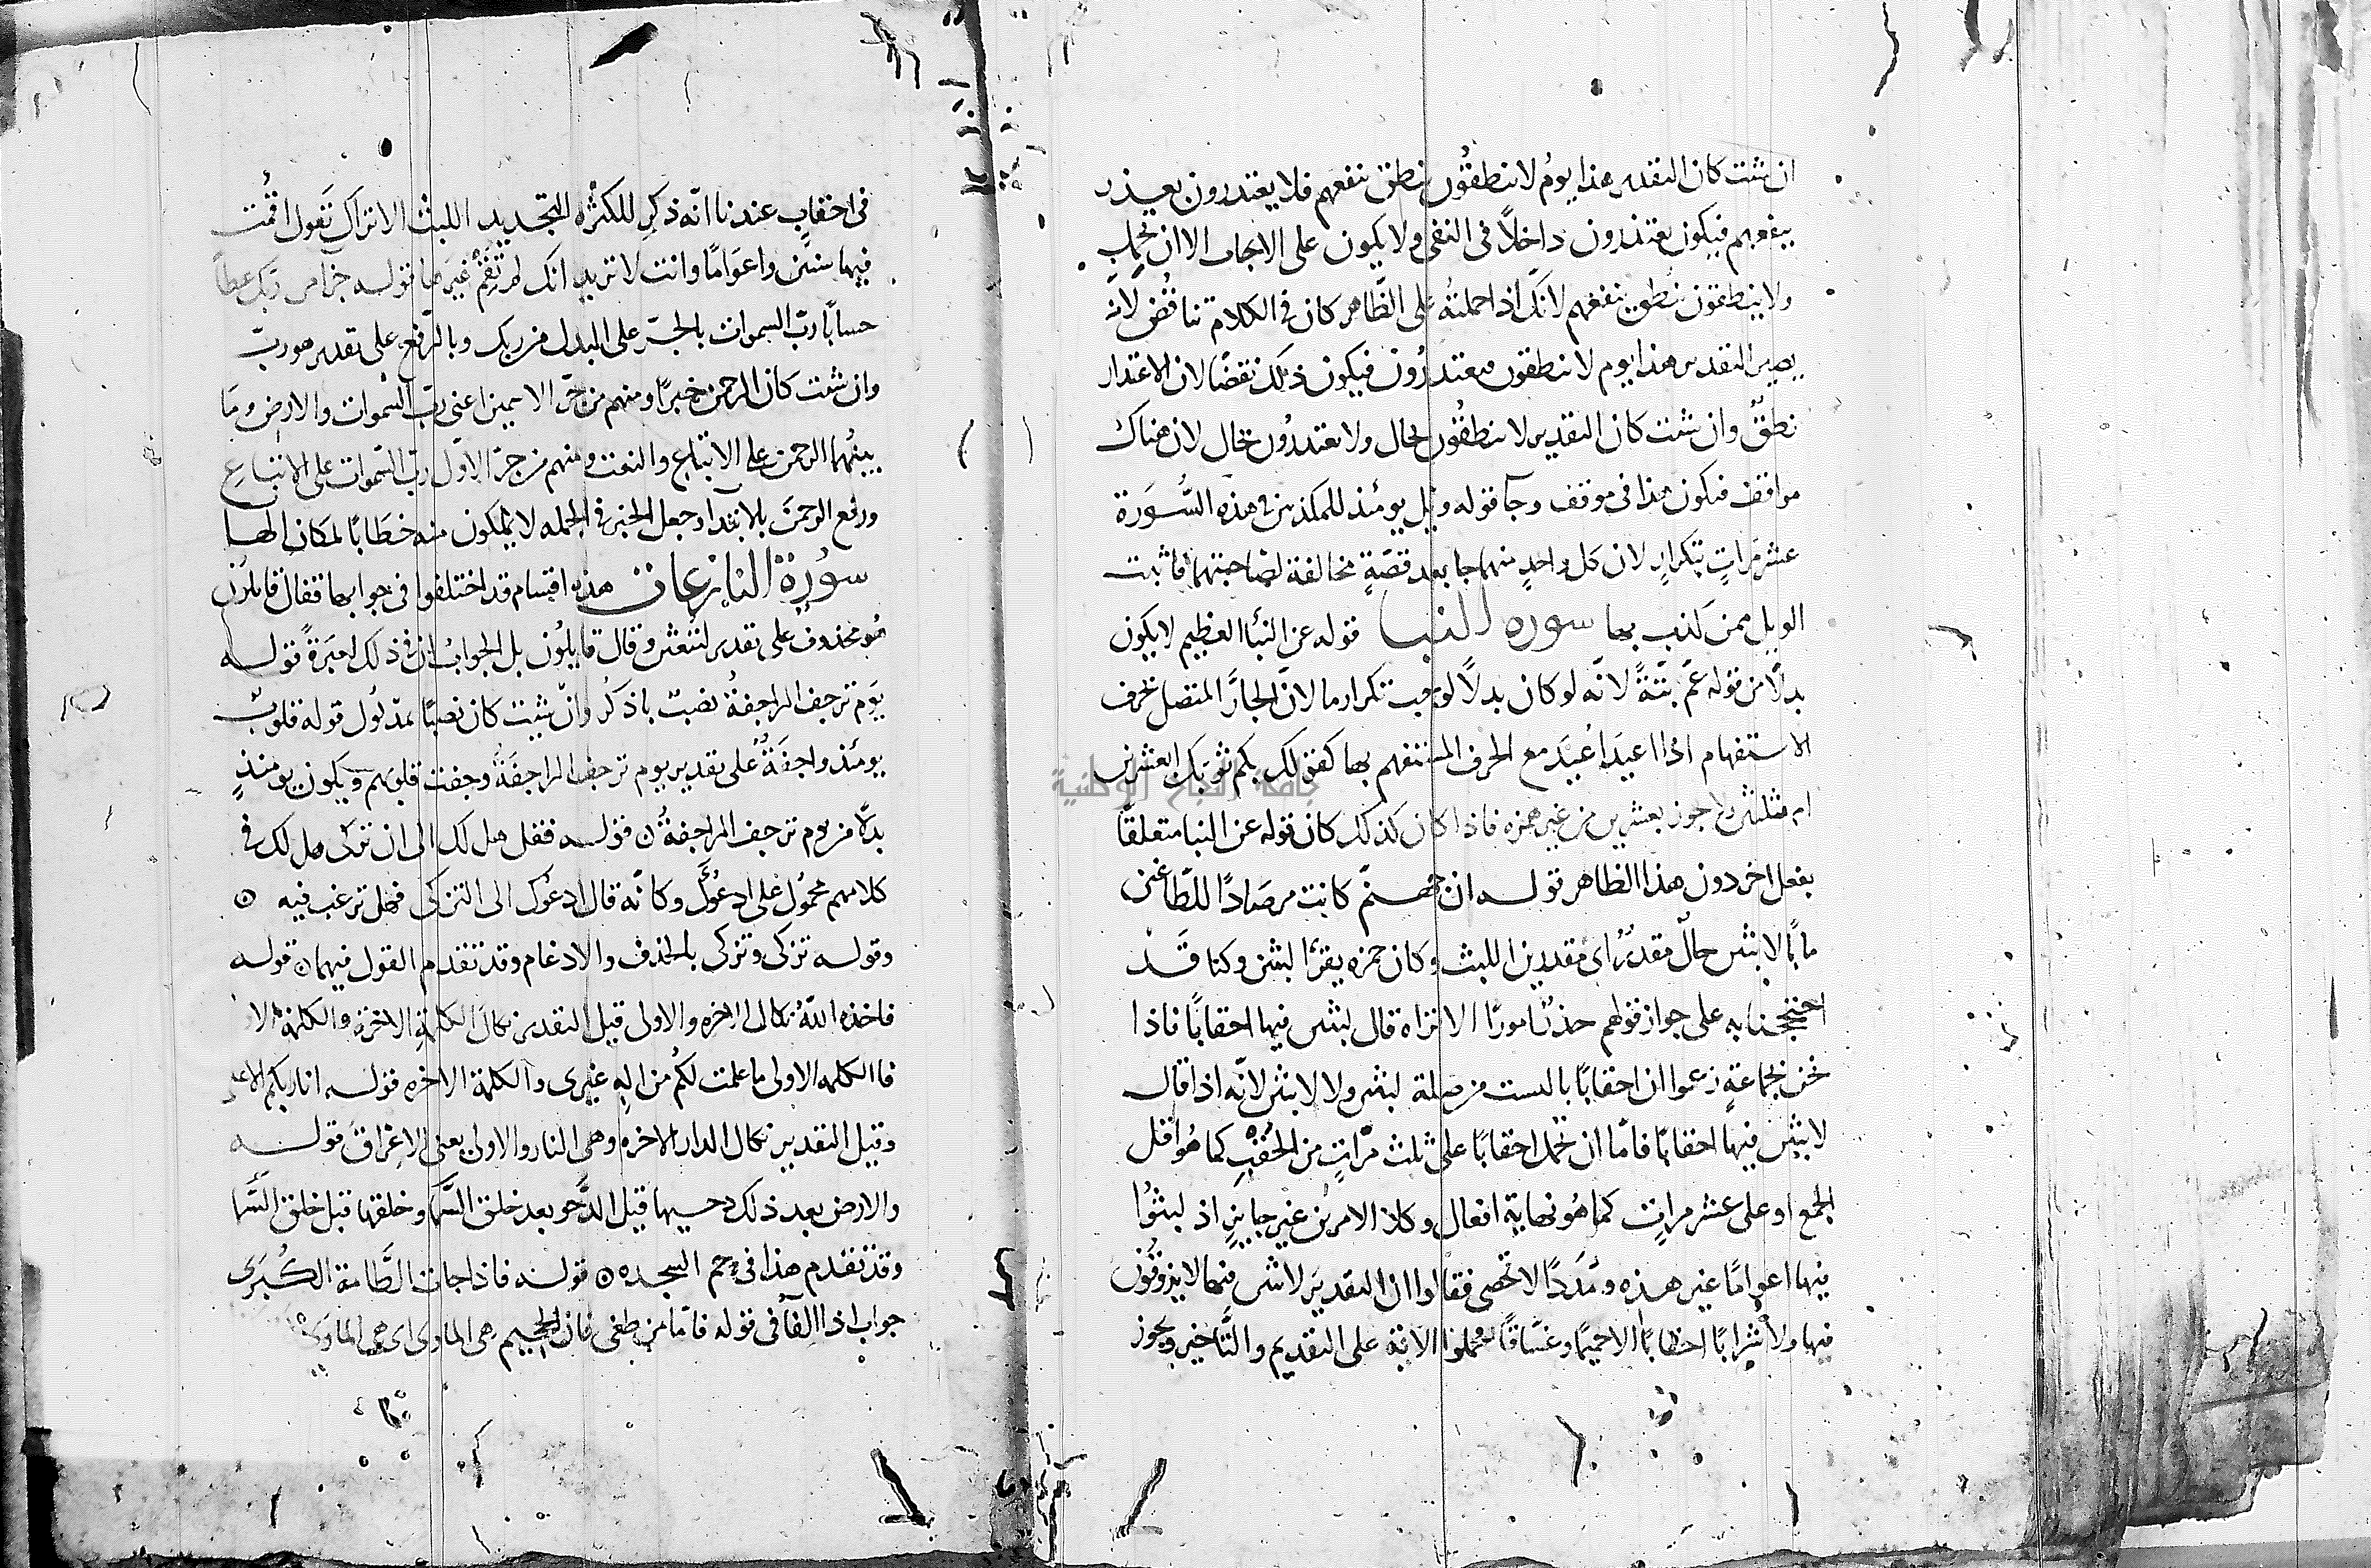 ان شئت كان التقدير هذا يوم لا ينطقون بنطق ينفعهم فلا يعتذرون بعذر
ينفعهم فيكون يعتذرون داخلا في النفي ولا يكون على الايجاب الا ان يحمل
ولا ينطقون بنطق ينفعهم لانك اذا حملته على الظاهر كان في الكلام تناقض لانه
يصير التقدير هذا يوم لا ينطقون فيعتذرون فيكون ذلك نقضا لان الاعتذار
نطق وان شئت كان التقدير لا ينطقون بحال ولا يعتذرون بحال لان هناك
مواقف فيكون هذا في موقف وجا قوله ويل يومئذ للمكذبين في هذه السورة
عشر مرات بتكرار لان كل واحد منهما جا بعد قصة مخالفة لصاحبتهما فاثبت
الويل لمن كذب بها سوره النبا قوله عن النبأ العظيم لا يكون
بدلا من قوله عم بتة لانه لو كان بدلا لوجبت تكرار ما لان الجار المتصل بحرف
الاستفهام اذا اعيد اعيد مع الحرف المستفهم بها كقولك بكم ثوبك ابعشرين
ام بثلثين ولا يجوز بعشرين من غير همزه فاذا كان كذلك كان قوله عن النبا متعلقا
بفعل اخر دون هذا الظاهر قوله ان جهنم كانت مرصادا للطاغين
مابا لابثين حال مقدر اي مقدرين اللبث وكان حمزه يقرأ لبثين وكنا قد
احتججنا به على جواز قولهم حذر امورا الا تراه قال لبثين فيها احقابا فاذا
نحن بجماعة زعموا ان احقابا ليست من صلة لبثين ولا لابثين لانه اذا قال
لابثين فيها احقابا فاما ان تحمل احقابا على ثلث مرات من الحقب كما هو اقل
الجمع او على عشر مرات كما هو نهاية افعال وكلا الامرين غير جايز اذ لبثوا
فيها اعواما غير هذه ومددا لا تحصى فقالوا ان التقدير لابثين فيها لا يذوقون
فيها ولا شرابا احقابا الا حميما وغساقا فحملوا الاية على التقديم والتاخير ويجوز
في احقاب عندنا انه ذكر للكثره لا لتحديد اللبث الا تراك تقول اقمت
فيها سنين واعواما وانت لا تريد انك لم تقم غيرها قوله جزآ من ربك عطآ
حسابا رب السموات بالجر على البدل من ربك وبالرفع على تقدير هو رب
وان شئت كان الرحمن خبرا ومنهم من جر الاسمين اعني رب السموات والارض وما
بينهما الرحمن على الاتباع والنعت ومنهم من جر الاول رب السموات على الاتباع
ورفع الرحمن بالابتدا وجعل الخبر في الجمله لا يملكون منه خطابا لمكان الها
سورة النازعات هذه اقسام قد اختلفوا في جوابها فقال قايلون
هو محذوف على تقدير لتبعثن وقال قايلون بل الجواب ان في ذلك لعبرة قوله
يوم ترجف الراجفة نصبت باذكر وان شيت كان نصبا بمدلول قوله قلوب
يومئذ واجفة على تقدير يوم ترجف الراجفة وجفت قلوبهم ويكون يومئذ
بدلا من يوم ترجف الراجفة ن قوله فقل هل لك الى ان تزكى هل لك في
كلامهم محمول على ادعوك وكانه قال ادعوك الى التزكى فهل ترغب فيه ن
وقوله تزكى وتزكى بالحذف والادغام وقد تقدم القول فيهما ن قوله
فاخذه الله نكال الاخره والاولى قيل التقدير نكال الكلمة الاخرة والكلمة الا
فالكلمه الاولى ما علمت لكم من اله غيري والكلمة الاخره قوله انا ربكم الاعلى
وقيل التقدير نكال الدار الاخره وهي النار والاولى يعني الاغراق قوله
والارض بعد ذلك دحيها قيل الدحو بعد خلق السما وخلقها قبل خلق السما
وقد تقدم هذا في حم السجده ن قوله فاذا جات الطامة الكبرى
جواب اذا الفآ في قوله فاما من طغى فان الجحيم هي الماوى اي هي الماوى
جامعة النجاح الوطنية